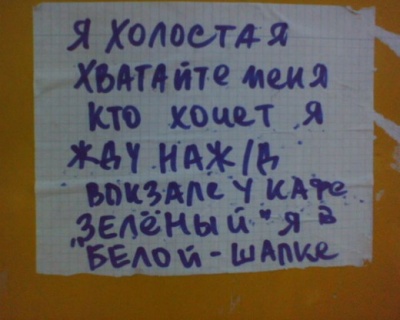 Я ХОЛОСТАЯ
ХВАТАЙТЕ МЕНЯ
КТО ХОЦЕТ Я
ЖДУ НАЖ/Д
ВОКЗАЛЕ У КАФЕ
"ЗЕЛЁНЫЙ" Я В
"БЕЛОЙ-ШАПКЕ